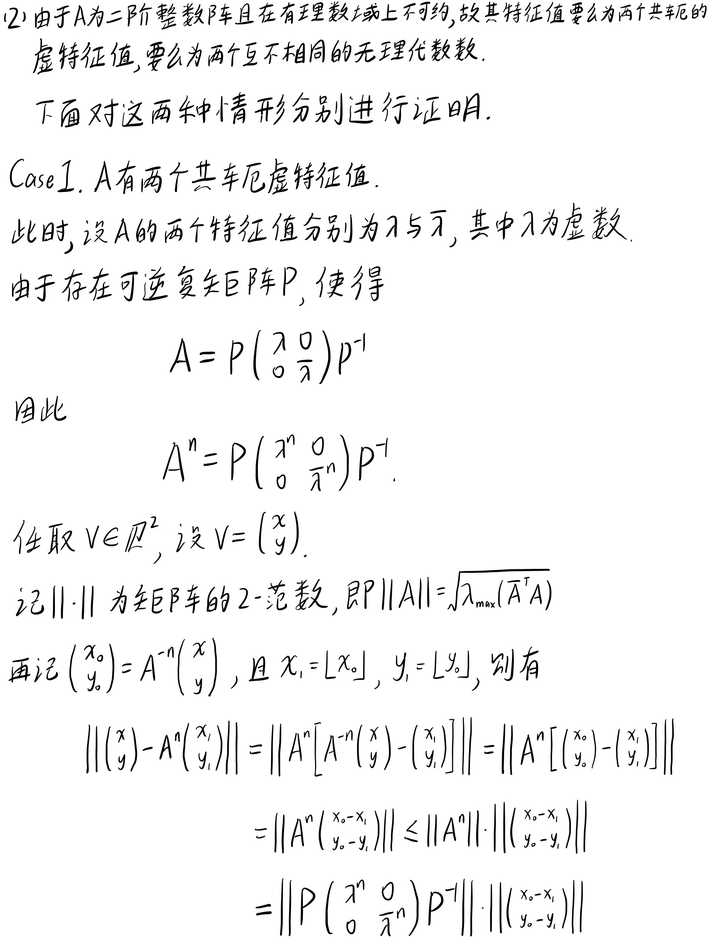 (2) 由于A为二阶整数阵且在有理数域上不可约,故其特征值要么为两个共轭的
虚特征值,要么为两个互不相同的无理代数数.
下面对这两种情形分别进行证明.
Case I. A有两个共轭虚特征值.
此时,设A的两个特征值分别为λ与λ̄, 其中λ为虚数.
由于存在可逆复矩阵P,使得
A = P ( λ 0 ; 0 λ̄ ) P⁻¹
因此
Aⁿ = P ( λⁿ 0 ; 0 λ̄ⁿ ) P⁻¹.
任取 V∈ℤ², 设 V = ( x ; y ).
记||·|| 为矩阵的2-范数,即||A||=√(λ_max(Ā^T A))
再记 ( x₀ ; y₀ ) = A⁻ⁿ ( x ; y ), 且 x₁=⌊x₀⌋, y₁=⌊y₀⌋, 则有
||( x ; y ) - Aⁿ( x₁ ; y₁ )|| = ||Aⁿ[A⁻ⁿ( x ; y ) - ( x₁ ; y₁ )]|| = ||Aⁿ[( x₀ ; y₀ ) - ( x₁ ; y₁ )]||
= ||Aⁿ( x₀-x₁ ; y₀-y₁ )|| ≤ ||Aⁿ||·||( x₀-x₁ ; y₀-y₁ )||
= ||P ( λⁿ 0 ; 0 λ̄ⁿ ) P⁻¹||·||( x₀-x₁ ; y₀-y₁ )||